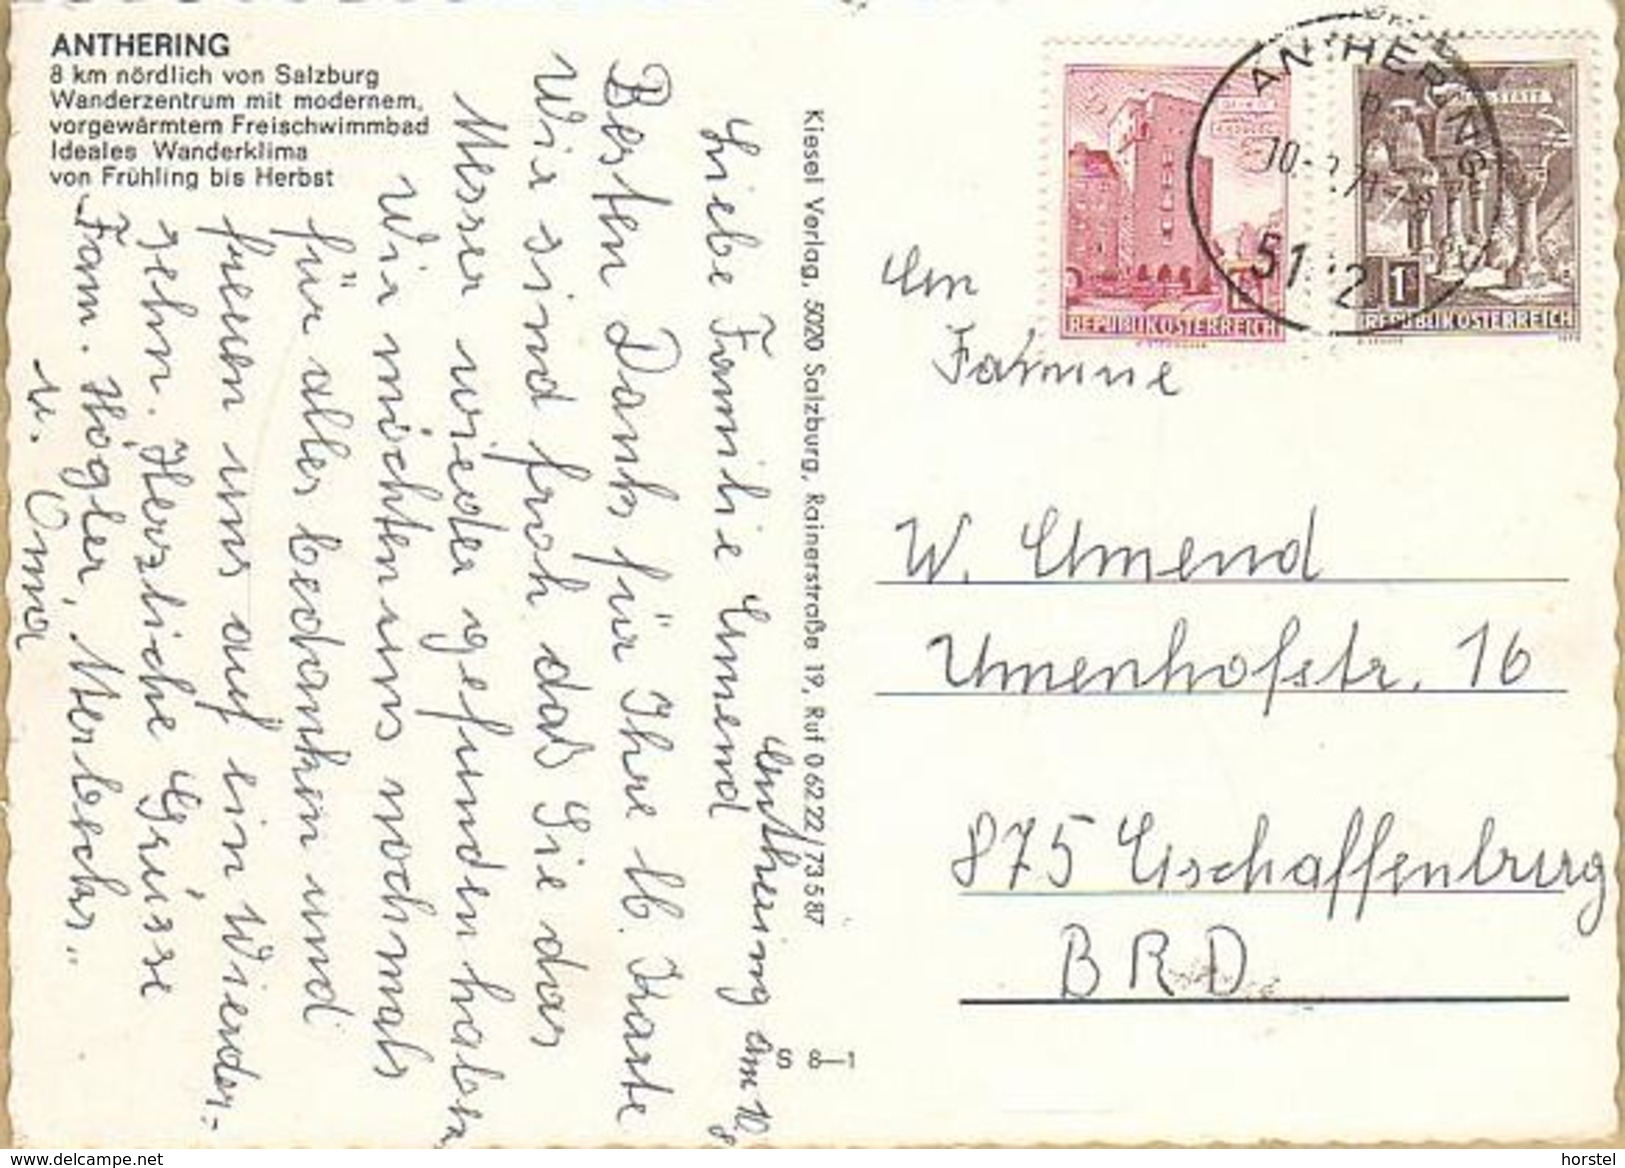 ANTHERING
8 km nördlich von Salzburg
Wanderzentrum mit modernem,
vorgewärmtem Freischwimmbad
Ideales Wanderklima
von Frühling bis Herbst
Anthering am
Liebe Familie Amend
Besten Dank für Ihre lb. Karte
Wir sind froh das Sie das
Messer wieder gefunden haben
Wir möchten uns nochmals
für alles bedanken und
freuen uns auf ein Wieder-
sehn. Herzliche Grüsse
Fam. Högler,
u. Oma
Kiesel Verlag, 5020 Salzburg, Rainerstraße 19, Ruf 0 62 22/73 5 87
S 8—1
ANTHERING
REPUBLIK ÖSTERREICH
1 REPUBLIK ÖSTERREICH
An
Familie
W. Amend
16
875 Aschaffenburg
BRD
www.delcampe.net
horstel